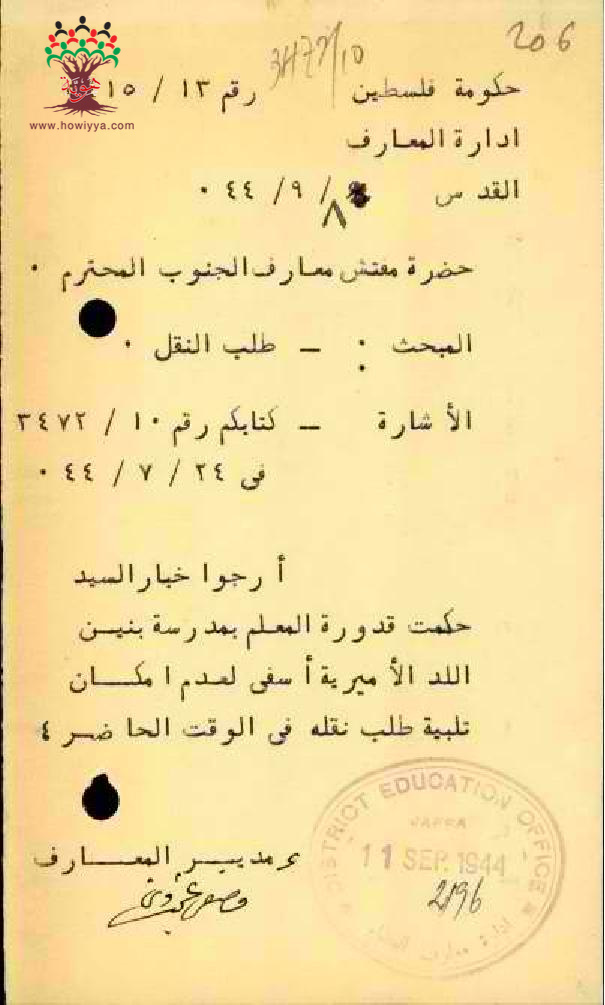 206
3472/10
حكومة فلسطين رقم ١٣ / ١٥
www.howiyya.com
ادارة المعارف
القدس ٨ / ٩ / ٤٤ ٠
حضرة مفتش معارف الجنوب المحترم ٠
المبحث : ــ طلب النقل ٠
الأشارة ــ كتابكم رقم ١٠ / ٣٤٧٢
فى ٢٤ / ٧ / ٤٤ ٠
أرجوا خبار السيد
حكمت قدورة المعلم بمدرسة بنيـن
اللد الأميرية أسفى لعدم امكـــان
تلبية طلب نقله فى الوقت الحاضـر ٤
DISTRICT EDUCATION OFFICE
JAFFA
11 SEP. 1944
ع مديـر المعـــارف
2196
ادارة معارف